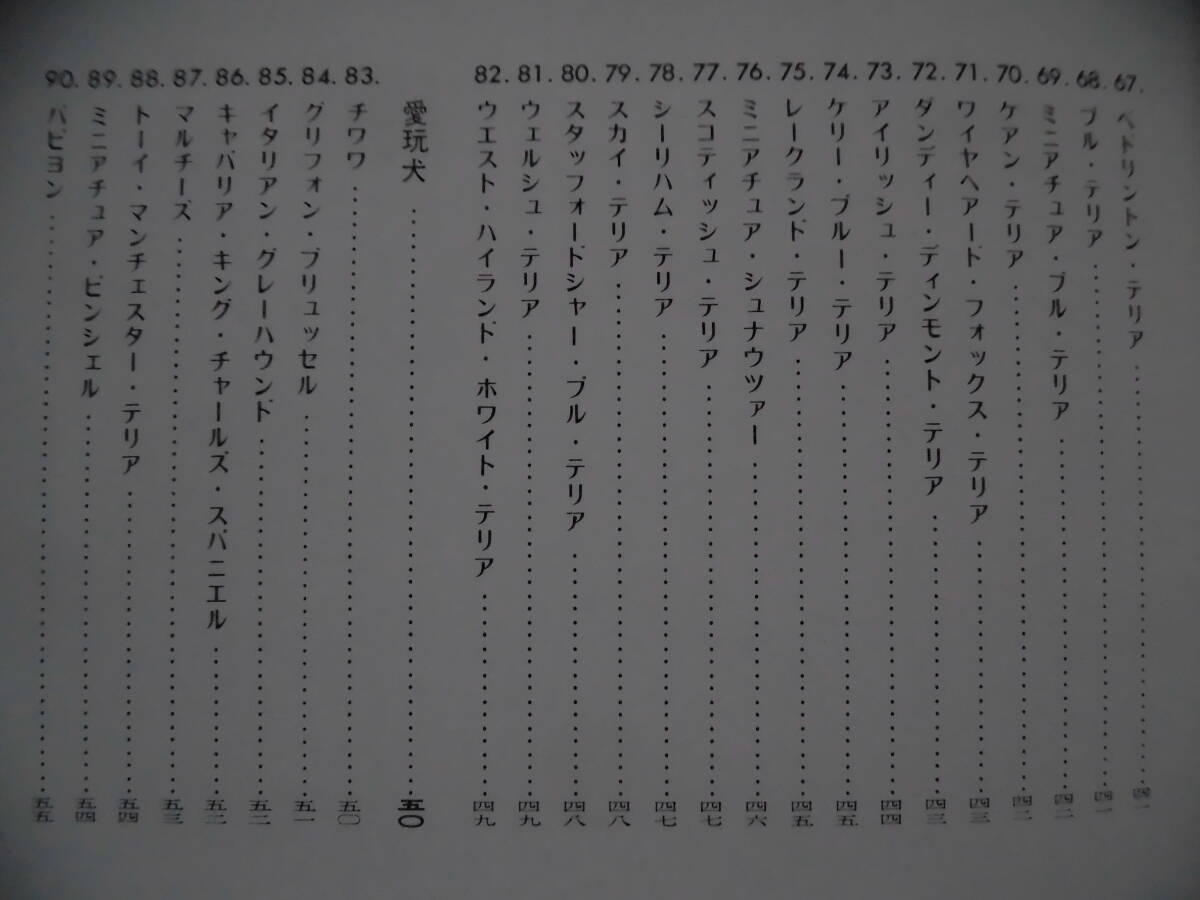 67. ベドリントン・テリア…………四一
68. ブル・テリア…………四一
69. ミニアチュア・ブル・テリア…………四二
70. ケアン・テリア…………四二
71. ワイヤヘアード・フォックス・テリア…………四三
72. ダンディー・ディンモント・テリア…………四三
73. アイリッシュ・テリア…………四四
74. ケリー・ブルー・テリア…………四五
75. レークランド・テリア…………四五
76. ミニアチュア・シュナウツァー…………四六
77. スコティッシュ・テリア…………四七
78. シーリハム・テリア…………四七
79. スカイ・テリア…………四八
80. スタッフォードシャー・ブル・テリア…………四八
81. ウェルシュ・テリア…………四九
82. ウエスト・ハイランド・ホワイト・テリア…………四九
愛玩犬…………五〇
83. チワワ…………五〇
84. グリフォン・ブリュッセル…………五一
85. イタリアン・グレーハウンド…………五二
86. キャバリア・キング・チャールズ・スパニエル…………五二
87. マルチーズ…………五三
88. トーイ・マンチェスター・テリア…………五四
89. ミニアチュア・ピンシェル…………五四
90. パピヨン…………五五